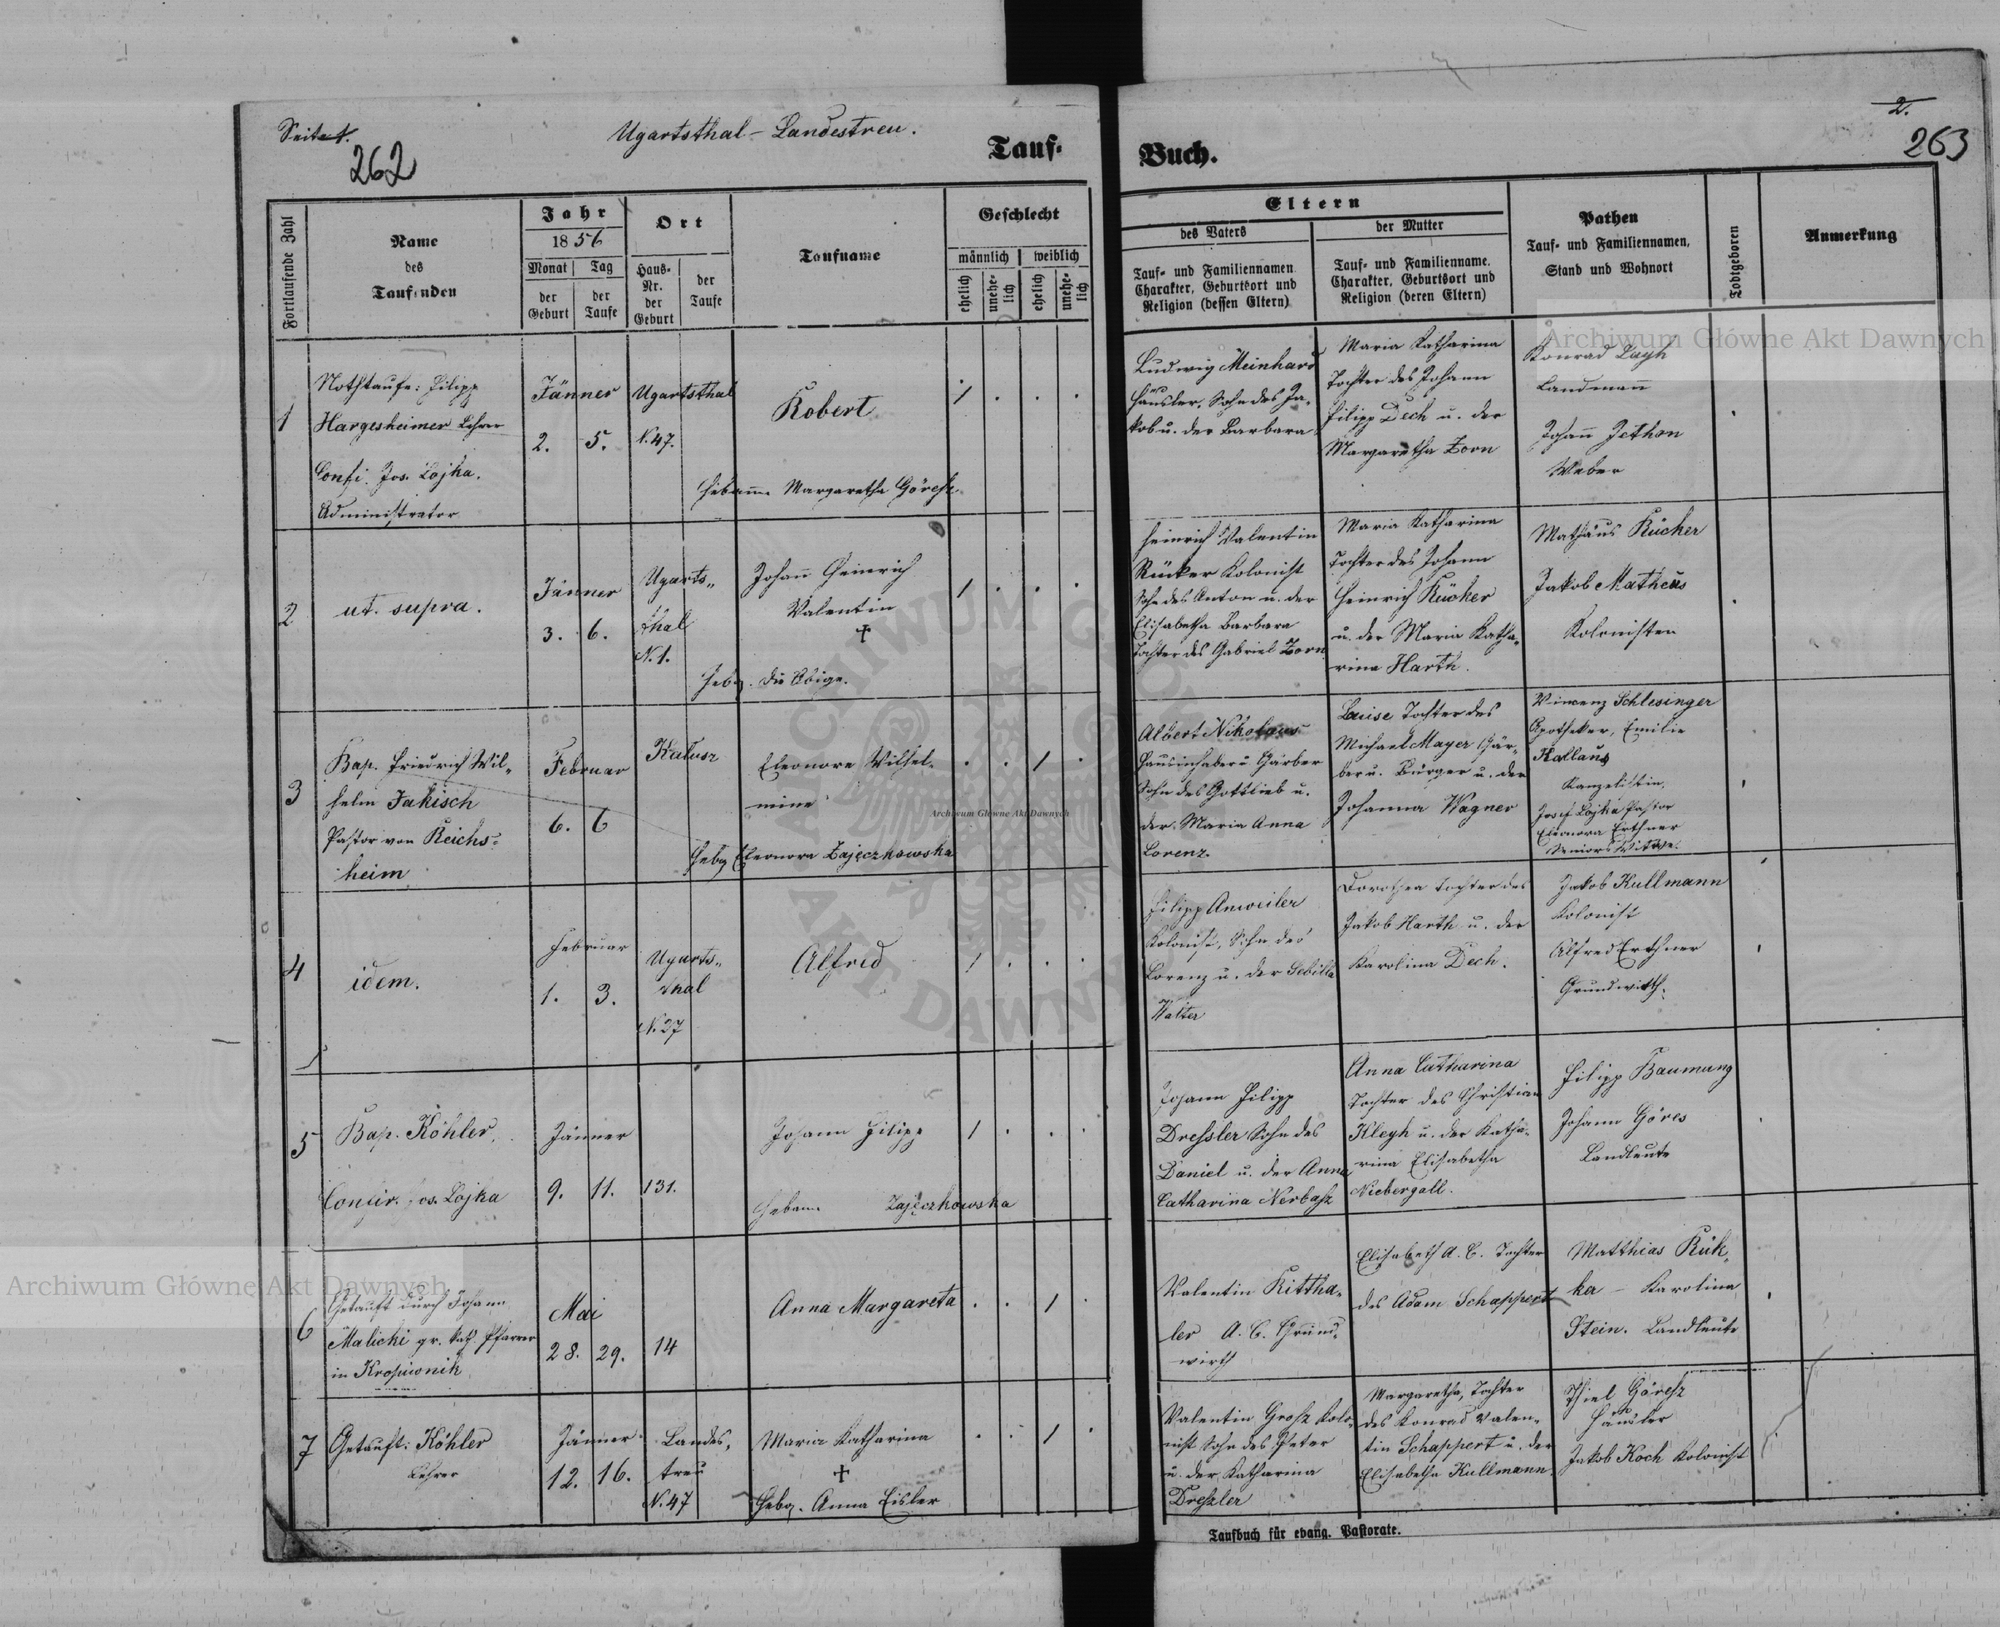 Seite 1.
262
Ugartsthal – Landestreu.
Tauf-
Buch.
2.
263
Fortlaufende Zahl
Name
des
Taufenden
Jahr
1856
Monat
Tag
der
Geburt
der
Taufe
Ort
Haus-
Nr.
der
Geburt
der
Taufe
Taufname
Geschlecht
männlich
weiblich
ehelich
unehe-
lich
ehelich
unehe-
lich
Eltern
des Vaters
der Mutter
Tauf- und Familiennamen
Charakter, Geburtsort und
Religion (dessen Eltern)
Tauf- und Familienname.
Charakter, Geburtsort und
Religion (deren Eltern)
Pathen
Tauf- und Familiennamen,
Stand und Wohnort
Todtgeboren
Anmerkung
1
Nothtaufe: Filipp
Hargesheimer Lehrer
Confi. Jos. Lojka.
Administrator
Jänner
2.
5.
Ugartsthal
N. 47.
Robert
Hebamme Margaretha Göresz
1
Ludwig Meinhard
Häusler, Sohn des Ja-
kob u. der Barbara
Maria Katharina
Tochter des Johann
Filipp Dech u. der
Margaretha Zorn
Konrad
Landmann
Johann Jethon
Weber
2
ut. supra.
Jänner
3.
6.
Ugarts-
thal
N. 1.
Johann Heinrich
Valentin
†
Hebg. die Obige.
1
Heinrich Valentin
Rücker Kolonist
Sohn des Anton u. der
Elisabetha Barbara
Tochter des Gabriel Zorn
Maria Katharina
Tochter des Johann
Heinrich Rücker
u. der Maria Katha-
rina Harth.
Mathäus Rücker
Jakob Matheus
Kolonisten
3
Bap. Friedrich Wil-
helm Jakisch
Pastor von Reichs-
heim
Februar
6.
6
Kalusz
Eleonore Wilhel-
mine
Hebg Eleonora Zajęczkowska
1
Albert Nikolaus
Hausinhaber u Gärber
Sohn des Gottlieb u.
der Maria Anna
Lorenz.
Louise Tochter des
Michael Mayer Gär-
ber u. Bürger u. der
Johanna Wagner
Vincenz Schlesinger
Apotheker, Emilie
Kallaus
Kanzelistin,
Josef Lojka Pastor
Eleonora Erthner
Seniors Witwe.
4
idem.
Februar
1.
3.
Ugarts-
thal
N. 27
Alfred
1
Filipp Anweiler
Kolonist, Sohn des
Lorenz u. der Sebilla
Walter
Dorothea Tochter des
Jakob Harth u. der
Karolina Dech.
Jakob Kullmann
Kolonist
Alfred Erthner
Grundwirth.
5
Bap. Köhler,
Confir. Jos. Lojka
Jänner
9.
11.
131.
Johann Filipp
Hebam. Zajęczkowska
1
Johann Filipp
Dressler Sohn des
Daniel u. der Anna
Catharina Nerbasz
Anna Catharina
Tochter des Christian
Klegh u. der Katha-
rina Elisabetha
Niebergall.
Filipp Baumung
Johann Göres
Landleute
6
Getauft durch Johann
Malicki gr. kath Pfarrer
in Kropiwnik
Mai
28.
29.
14
Anna Margareta
1
Valentin Rittha-
ler A. C. Grund-
wirth
Elisabeth A. C. Tochter
des Adam Schappert
Matthias Rük-
ka – Karolina
Stein. Landleute
7
Getauft: Köhler
Lehrer
Jänner
12.
16.
Landes-
treu
N. 47
Maria Katharina
†
Hebg. Anna Eisler
1
Valentin Grosz Kolo-
nist Sohn des Peter
u. der Katharina
Dreszler
Margaretha, Tochter
des Konrad Valen-
tin Schappert u. der
Elisabetha Kullmann
Thiel Göresz
Häusler
Jakob Koch Kolonist
Taufbuch für evang. Pastorate.
Archiwum Główne Akt Dawnych
Archiwum Główne Akt Dawnych
Archiwum Główne Akt Dawnych
ARCHIWUM GŁÓWNE AKT DAWNYCH